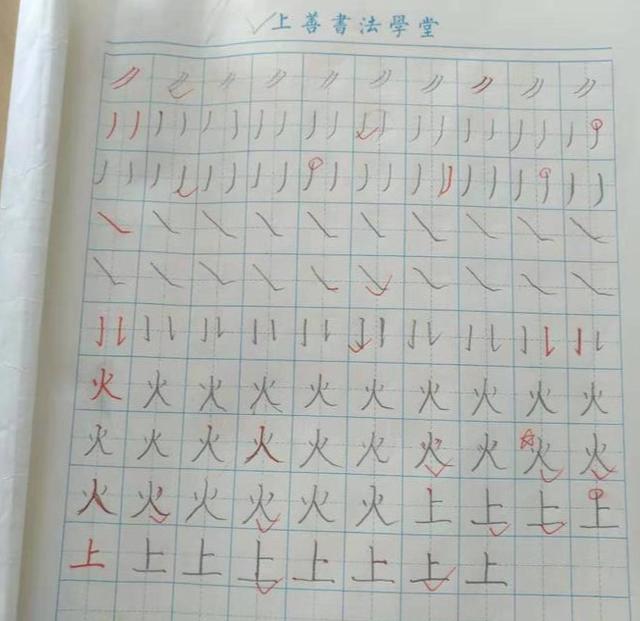 上善書法學堂
火火火火火火火火火火
火火火火火火火火火火
火火火火火火上上上上
上上上上上上上上